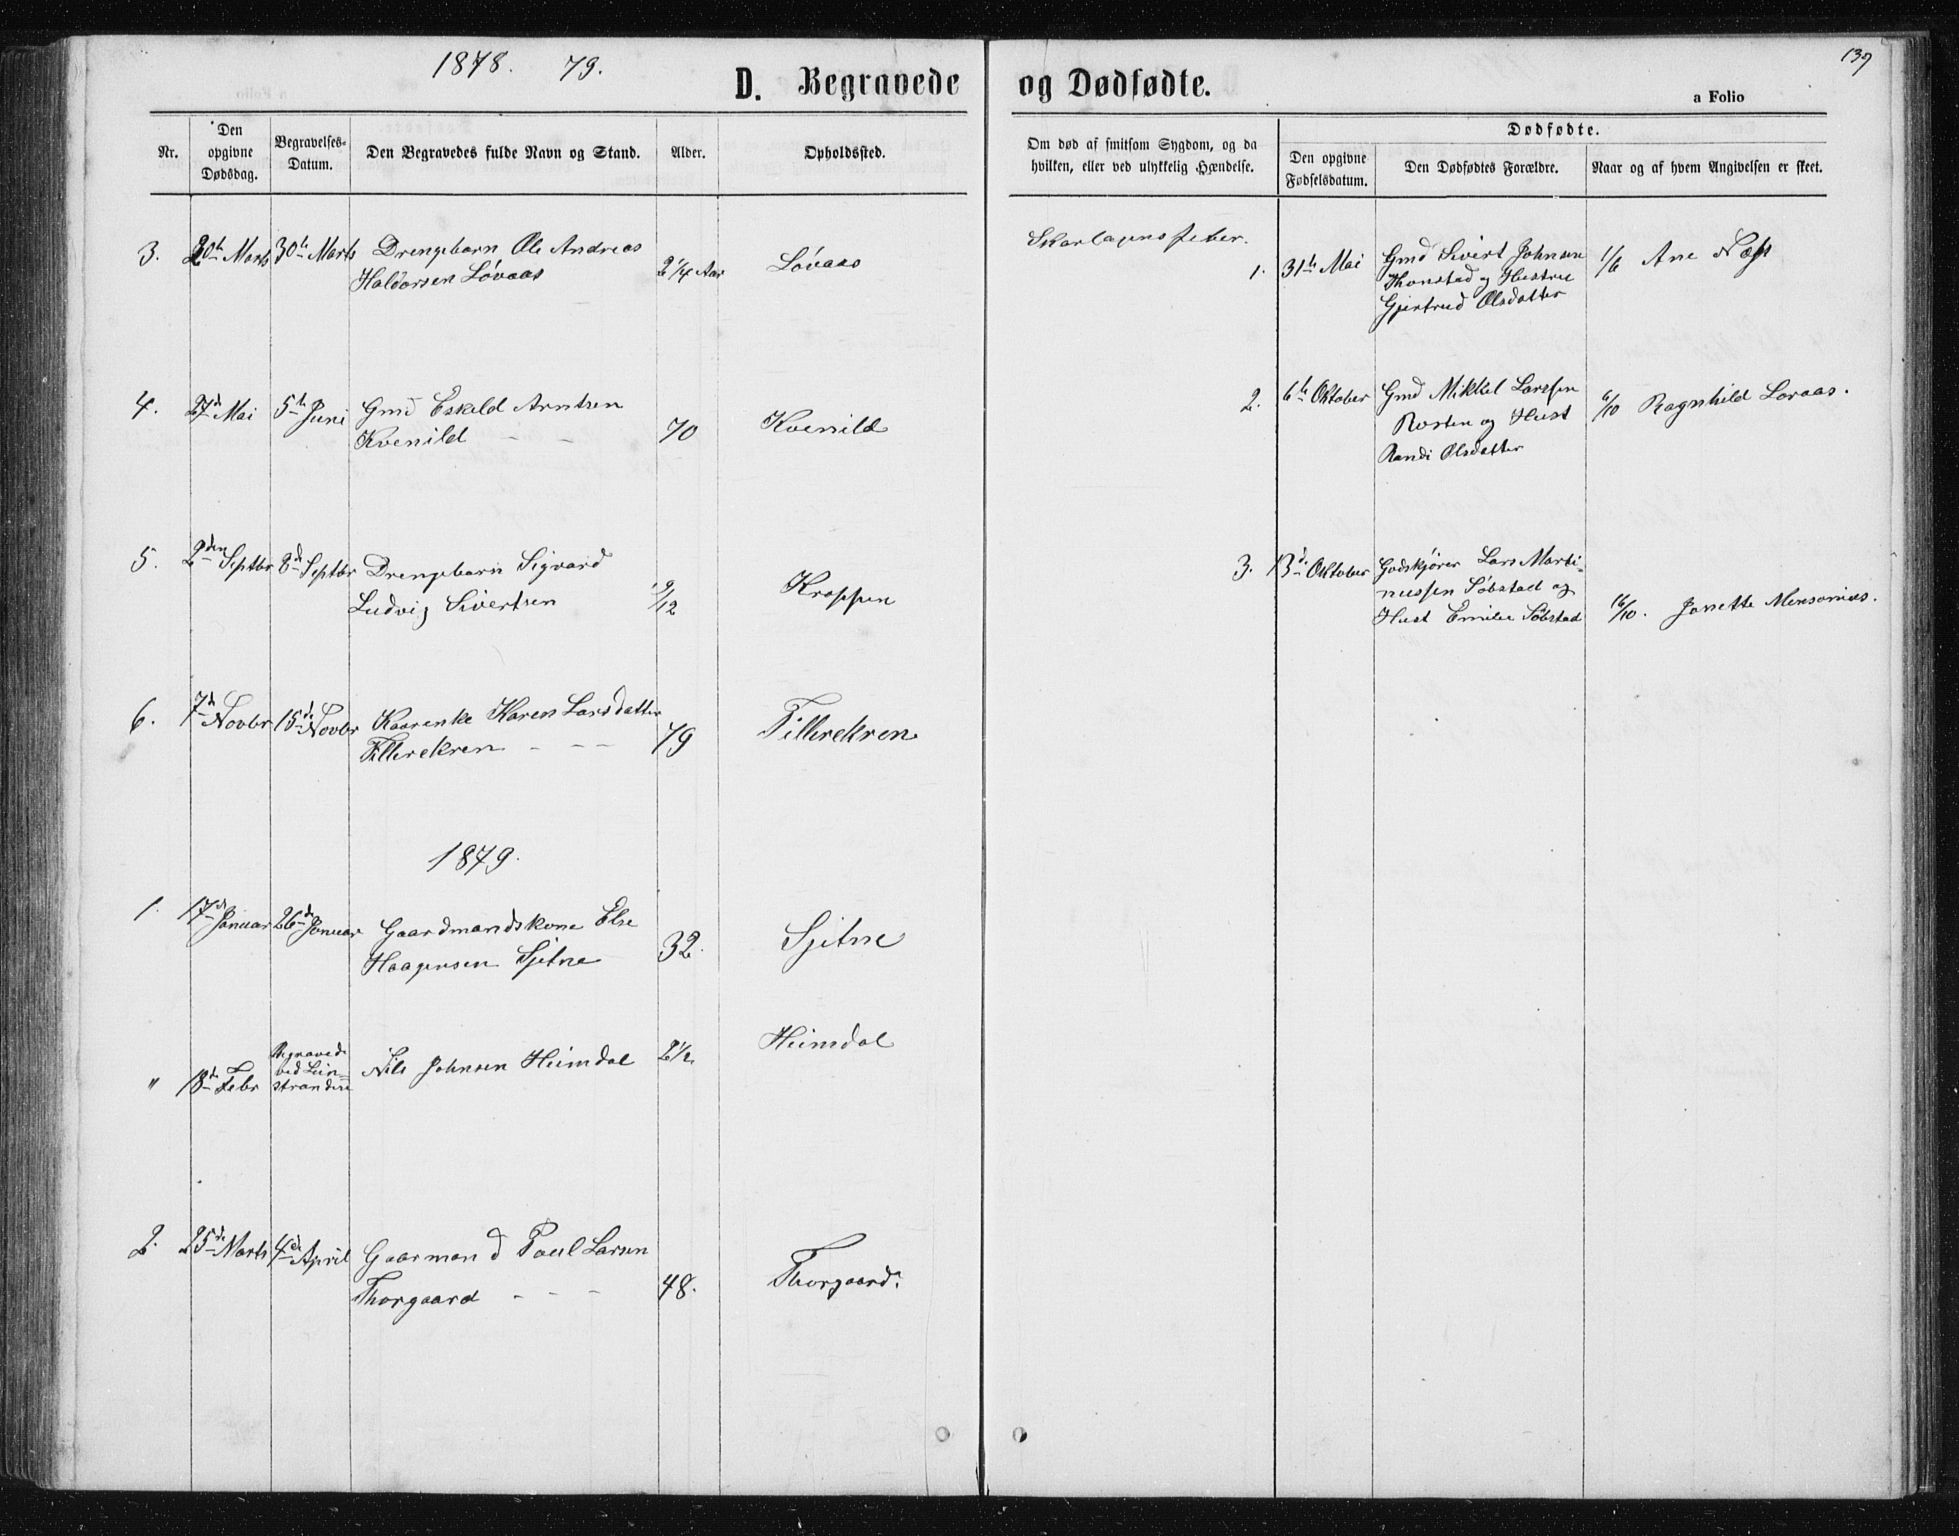 1878. 79.
139
D. Begravede og Dødfødte.
a Folio
Nr.
Den opgivne Dødsdag.
Begravelses-Datum.
Den Begravedes fulde Navn og Stand.
Alder.
Opholdssted.
Om død af smitsom Sygdom, og da hvilken, eller ved ulykkelig Hændelse.
Dødfødte.
Den opgivne Fødselsdatum.
Den Dødfødtes Forældre.
Naar og af hvem Angivelsen er skeet.
3. 20de Marts 30te Marts Drengebarn Ole Andreas
Haldorsen Løvaas 2 1/4 Aar Løvaas
Skarlagensfeber.
4. 27de Mai 5te Juni Gmd Eskeld Arntsen
Kvenild - - 70 Kvenild
5. 2den Septbr 8de Septbr Drengebarn Sigvard
Ludvig Sivertsen 9/12 Kroppen
6. 7de Novbr 15de Novbr Kaarenke Karen Larsdatter
Tillerekren - - - 79 Tillerekren
1879.
1. 17de Januar 26de Januar Gaardmandskone Else
Haagensen Sjetne 32. Sjetne
" 18de Febr Begravede
ved Lein-
stranden Nils Johnsen Heimdal 2 1/2 Heimdal
2. 25de Marts 4de April Gaarmand Paul Larsen
Thorgaard - - - 48. Thorgaard.
1. 31te Mai Gmd Sivert Johnsen
Thonstad og Hustru
Gjertrud Olsdatter
1/6 Ane Næss
2. 6te Oktober Gmd Mikkel Larssen
Rosten og Hust
Randi Olsdatter
6/10 Ragnhild Loraas.
3. 13de Oktober Godskjører Lars Marti-
nussen Søbstad og
Hust Emilie Søbstad
16/10. Janette